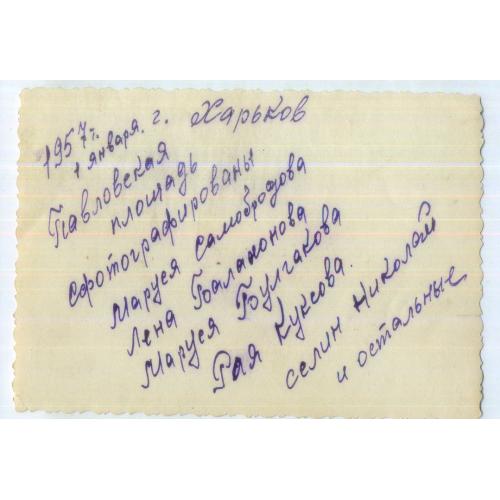 1957 г.
1 января. г. Харьков
Павловская
площадь
сфотографированы
Маруся Самобродова
Лена Балахонова
Маруся Булгакова
Рая Куксова.
селин Николай
и остальные